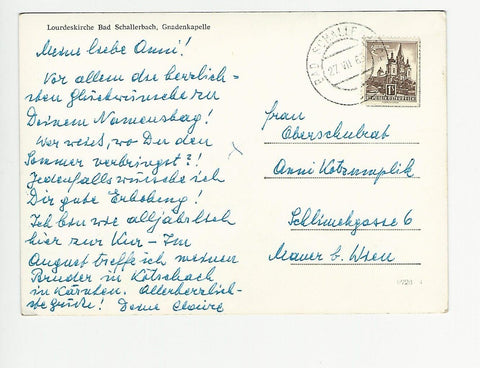 Lourdeskirche Bad Schallerbach, Gnadenkapelle
Meine liebe Anni!
Vor allem die herzlich-
sten Glückwünsche zu
Deinem Namenstag!
Wer weiß, wo Du den
Sommer verbringst?!
Jedenfalls wünsche ich
Dir gute Erholung!
Ich bin wie alljährlich
hier zur Kur – Im
August treffe ich meinen
Bruder in Kötschach
in Kärnten. Allerherzlich-
ste Grüße! Deine Claire
BAD SCHALLE
27. VII. 6
Frau
Oberschulrat
Anni Kotzumplik
Schlimekgasse 6
Mauer b. Wien